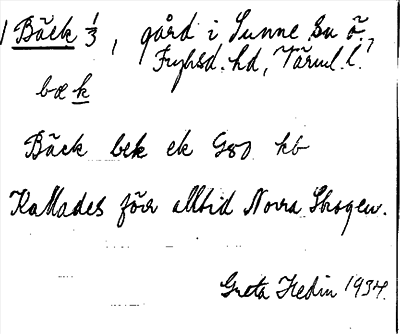 1 Bäck 1/3, gård i Sunne sn ö.,
Fryksd. hd, Värml. l.
bæk
Bäck bek ek G80 kb
Kallades förr alltid Norra Skogen.
Greta Hedin 1934.